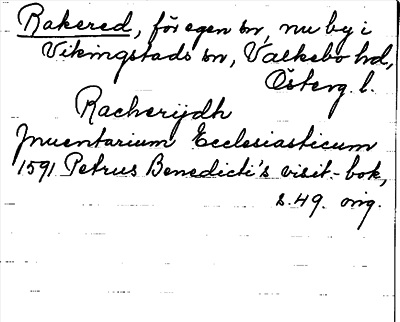 Rakered, för egen sn, nu by i
Vikingstads sn, Valkebo hd,
Österg. l.
Racherijdh
Inuentarium Ecclesiasticum
1591 Petrus Benedicti's visit.-bok,
s. 49. orig.